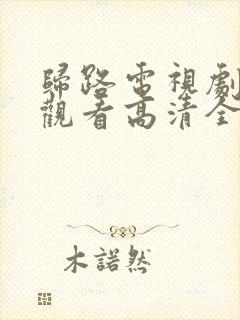 歸路電視劇
觀看高清全
木諾然